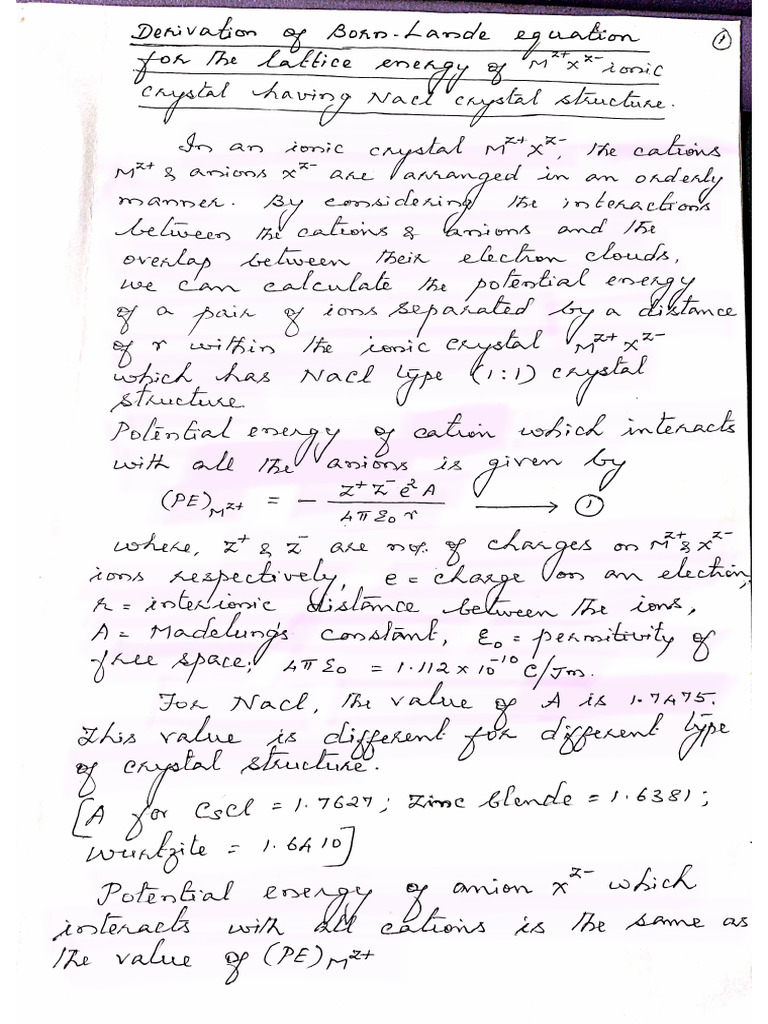 Derivation of Born-Lande equation
①
for the lattice energy of M^z+ X^z- ionic
crystal having NaCl crystal structure.
In an ionic crystal M^z+ X^z-, the cations
M^z+ & anions X^z- are arranged in an orderly
manner. By considering the interactions
between the cations & anions and the
overlap between their electron clouds,
we can calculate the potential energy
of a pair of ions separated by a distance
of r within the ionic crystal M^z+ X^z-
which has NaCl type (1:1) crystal
structure.
Potential energy of cation which interacts
with all the anions is given by
(PE)_M^z+ = - Z^+ Z^- e^2 A / 4πε₀ r ⟶ ①
where, Z^+ & Z^- are no. of charges on M^z+ & X^z-
ions respectively, e = charge on an electron,
r = interionic distance between the ions,
A = Madelung's constant, ε₀ = permitivity of
free space; 4πε₀ = 1.112 x 10^-10 C/Jm.
For NaCl, the value of A is 1.7475.
This value is different for different type
of crystal structure.
[A for CsCl = 1.7627; Zinc blende = 1.6381;
wurtzite = 1.6410]
Potential energy of anion X^z- which
interacts with all cations is the same as
the value of (PE)_M^z+